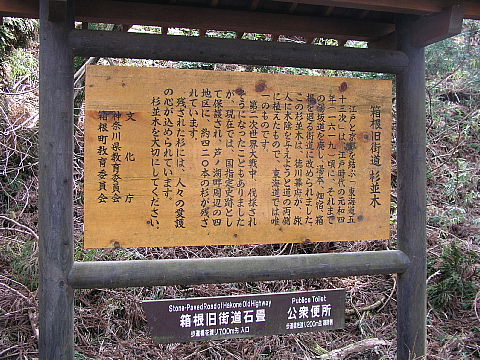 箱根旧街道 杉並木
江戸と京都を結ぶ「東海道五
十三次」は、江戸時代の元和四
年(一六一八)頃に、それまで
の湯坂道を廃し、湯本、元箱、箱
根を通る街道に改められました。
この杉並木は、徳川幕府が、旅
人に木陰を与えようと道の両側
に植えたもので、東海道では唯
一のものです。
第二次世界大戦中、伐採され
そうになったこともありました
が、現在では、国指定史跡とし
て保護され、芦ノ湖畔周辺の四
地区に、約四二〇本の杉が残さ
れています。
残された杉には、人々の愛護
の心が込められています。
杉並木を大切にしてください。
文化庁
神奈川県教育委員会
箱根町教育委員会
Stone-Paved Road of Hakone Old Highway
箱根旧街道石畳
歩道橋花後り700m先 入口
Publice Toilet
公衆便所
歩道橋渡り200m先